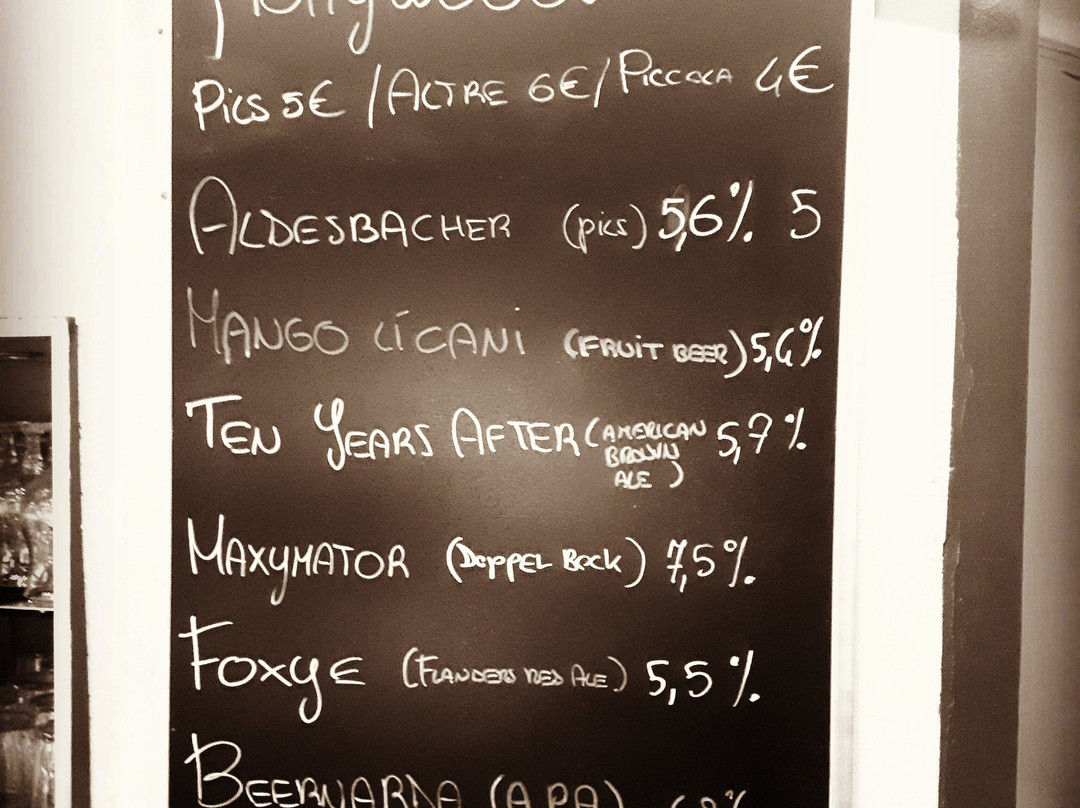 Pils 5€ / ALTRE 6€ / PICCOLA 4€
ALDESBACHER (pils) 5,6% 5
MANGO LÍCANI (FRUIT BEER) 5,4%
TEN YEARS AFTER (AMERICAN BROWN ALE) 5,7%
MAXYMATOR (DOPPEL BOCK) 7,5%
FOXYE (FLANDERS RED ALE) 5,5%
BEERNARDA (APA)